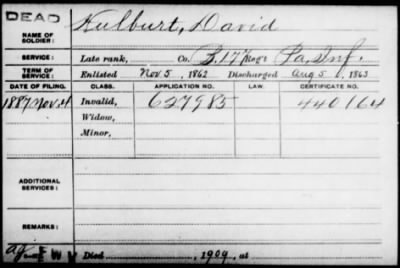 DEAD
NAME OF SOLDIER: Hulburt, David
SERVICE: Late rank, Co. F, 177 Reg't Pa. Inf.
TERM OF SERVICE: Enlisted Nov 5, 1862 Discharged Aug 5, 1863
DATE OF FILING. CLASS. APPLICATION NO. LAW. CERTIFICATE NO.
1887 Nov. 4 Invalid, 627985 440164
Widow,
Minor,
ADDITIONAL SERVICES:
REMARKS:
Died 1909, at